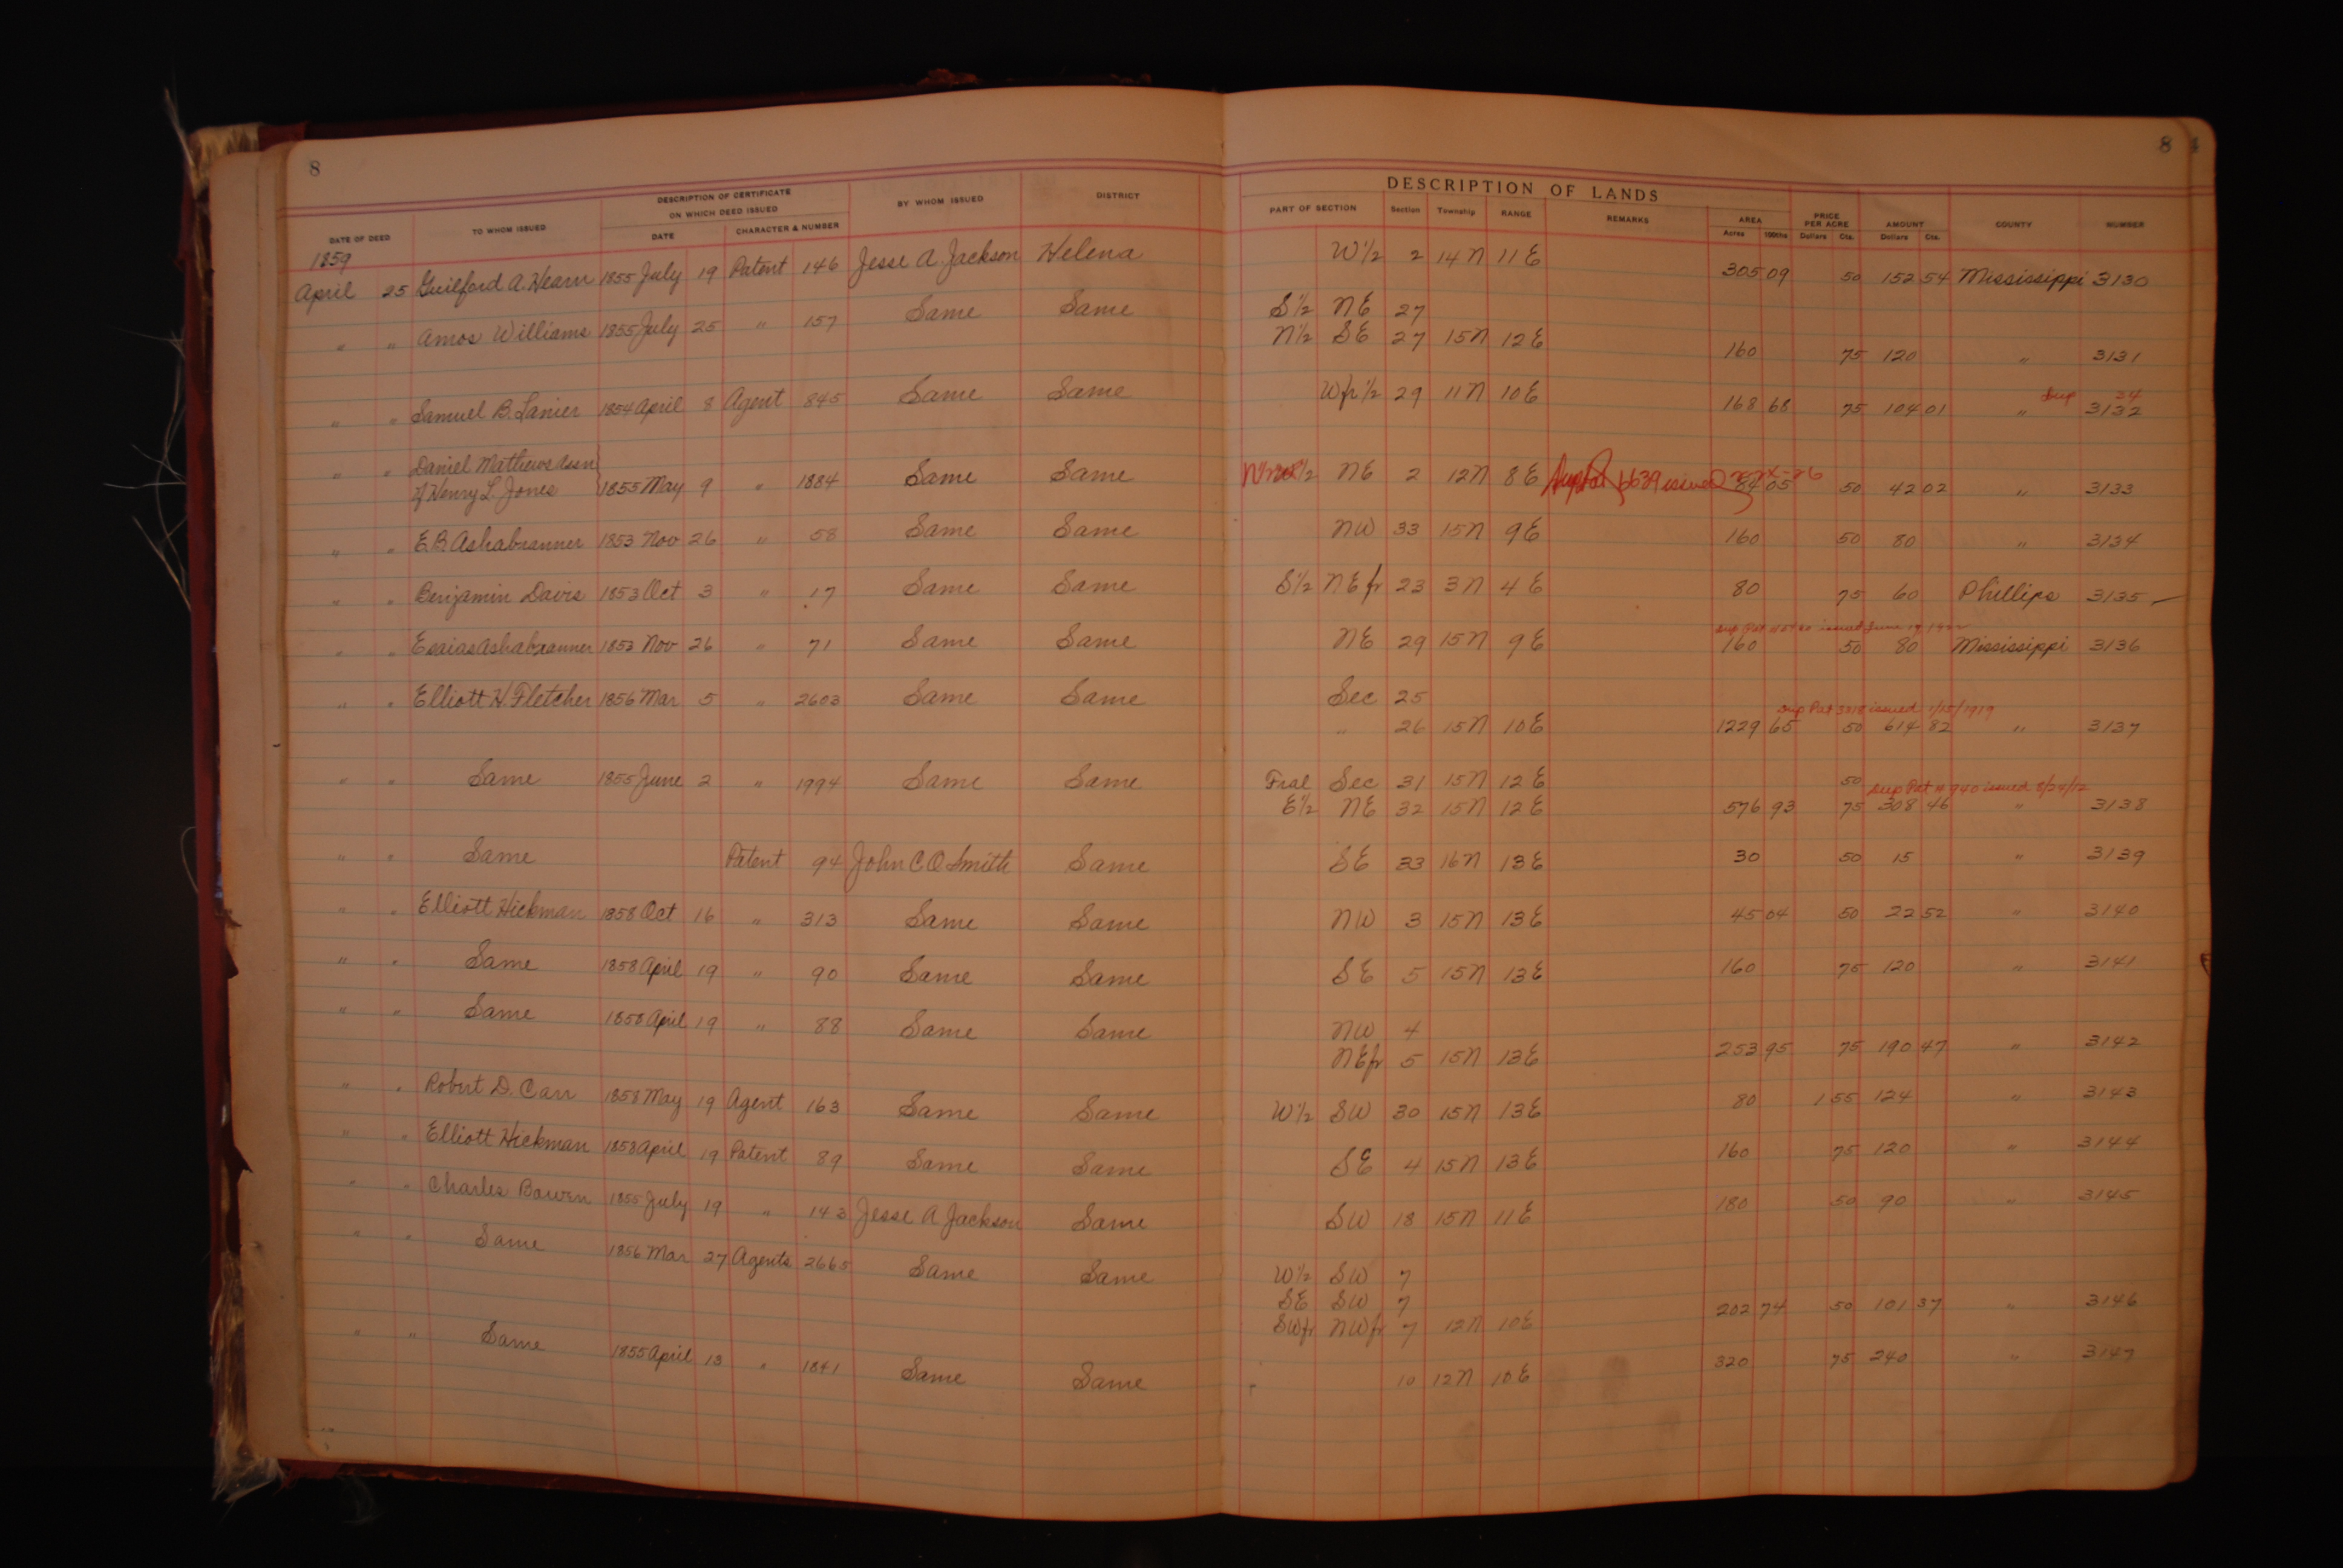 8
8
DESCRIPTION OF CERTIFICATE
ON WHICH DEED ISSUED
DATE OF DEED TO WHOM ISSUED DATE CHARACTER & NUMBER BY WHOM ISSUED DISTRICT
DESCRIPTION OF LANDS
PART OF SECTION Section Township RANGE REMARKS AREA PRICE PER ACRE AMOUNT COUNTY NUMBER
Acres 100ths Dollars Cts. Dollars Cts.
1859
April 25 Guilford A. Hearn 1855 July 19 Patent 146 Jesse A. Jackson Helena W 1/2 2 14 N 11 E 305 09 50 152 54 Mississippi 3130
" " Amos Williams 1855 July 25 " 157 Same Same S 1/2 NE 27
N 1/2 SE 27 15 N 12 E 160 75 120 " 3131
" " Samuel B. Lanier 1854 April 8 Agent 845 Same Same W fr 1/2 29 11 N 10 E 168 68 75 104 01 " Sup 24 3132
" " Daniel Mathews Assn }
of Henry L. Jones } 1855 May 9 " 1884 Same Same 1/2 NE 2 12 N 8 E Sup Pat 6639 issued 84 05 50 42 02 " 3133
" " E.B. Ashabranner 1853 Nov 26 " 58 Same Same NW 33 15 N 9 E 160 50 80 " 3134
" " Benjamin Davis 1853 Oct 3 " 17 Same Same S 1/2 NE fr 23 3 N 4 E 80 75 60 Phillips 3135 —
Sup Pat issued June 19
" " Esaias Ashabranner 1853 Nov 26 " 71 Same Same NE 29 15 N 9 E 160 50 80 Mississippi 3136
" " Elliott H. Fletcher 1856 Mar 5 " 2603 Same Same Sec 25
Sup Pat 3318 issued 1/15/1919
" 26 15 N 10 E 1229 65 50 614 82 " 3137
" " Same 1855 June 2 " 1994 Same Same Fral Sec 31 15 N 12 E 50 Sup Pat # 940 issued 8/24/12
E 1/2 NE 32 15 N 12 E 576 93 75 308 46 " 3138
" " Same Patent 94 John C O Smith Same SE 33 16 N 13 E 30 50 15 " 3139
" " Elliott Hickman 1858 Oct 16 " 313 Same Same NW 3 15 N 13 E 45 04 50 22 52 " 3140
" " Same 1858 April 19 " 90 Same Same SE 5 15 N 13 E 160 75 120 " 3141
" " Same 1858 April 19 " 88 Same Same NW 4
NE fr 5 15 N 13 E 253 95 75 190 47 " 3142
" " Robert D. Carr 1858 May 19 Agent 163 Same Same W 1/2 SW 30 15 N 13 E 80 1 55 124 " 3143
" " Elliott Hickman 1858 April 19 Patent 89 Same Same SE 4 15 N 13 E 160 75 120 " 3144
" " Charles Bowen 1855 July 19 " 143 Jesse A Jackson Same SW 18 15 N 11 E 180 50 90 " 3145
" " Same 1856 Mar 27 Agents 2665 Same Same W 1/2 SW 7
SE SW 7
SW fr NW fr 7 12 N 10 E 202 74 50 101 37 " 3146
" " Same 1855 April 13 " 1841 Same Same 10 12 N 10 E 320 75 240 " 3147